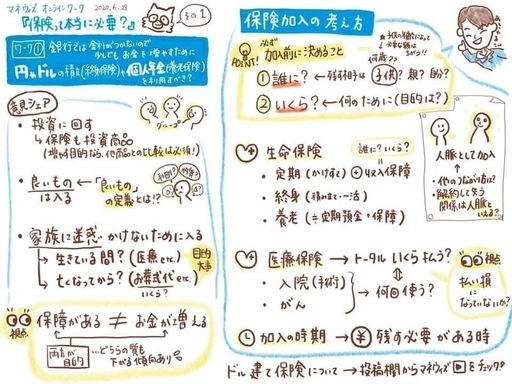 マネウィズ オンラインワーク 2020.6.28
『保険って本当に必要？』 その1
ワーク①
銀行では金利がつかないので
少しでもお金を増やすために
円やドルの積立(終身保険)や個人年金(養老保険)
を利用すべき？
意見シェア
グループ
・投資に回す
↳保険も投資商品
(増やす目的なら、他商品との比較は必須！)
・良いものは入る ← 「良いもの」の定義とは!?
・家族に迷惑かけないために入る
→生きている間？(医療etc.)
→亡くなってから？(お葬式代etc.)
いくら？
目的大事
視点
保障がある ≠ お金が増える
両方が目的 …どちらの質も下がる傾向あり
保険加入の考え方
POINT!
必ず
加入前に決めること
何歳？
① 誰に？ ←残す相手は 子供？親？自分？
② いくら？ ←何のために(目的は？)
生命保険
誰に？いくら？
・定期(かけすて) ⊕収入保障
・終身(積み立て・一括)
・養老(≒定期預金＋保障)
人脈として加入
・他のつながり方は？
・解約して失う
関係は人脈と
いえる？
医療保険 → トータルいくら払う？
・入院(手術)
・がん
何回使う？
視点
払い損
になっていないか？
加入の時期 → ¥ 残す必要がある時
ドル建て保険について → 投稿欄からマネウィズ ▶ をチェック！